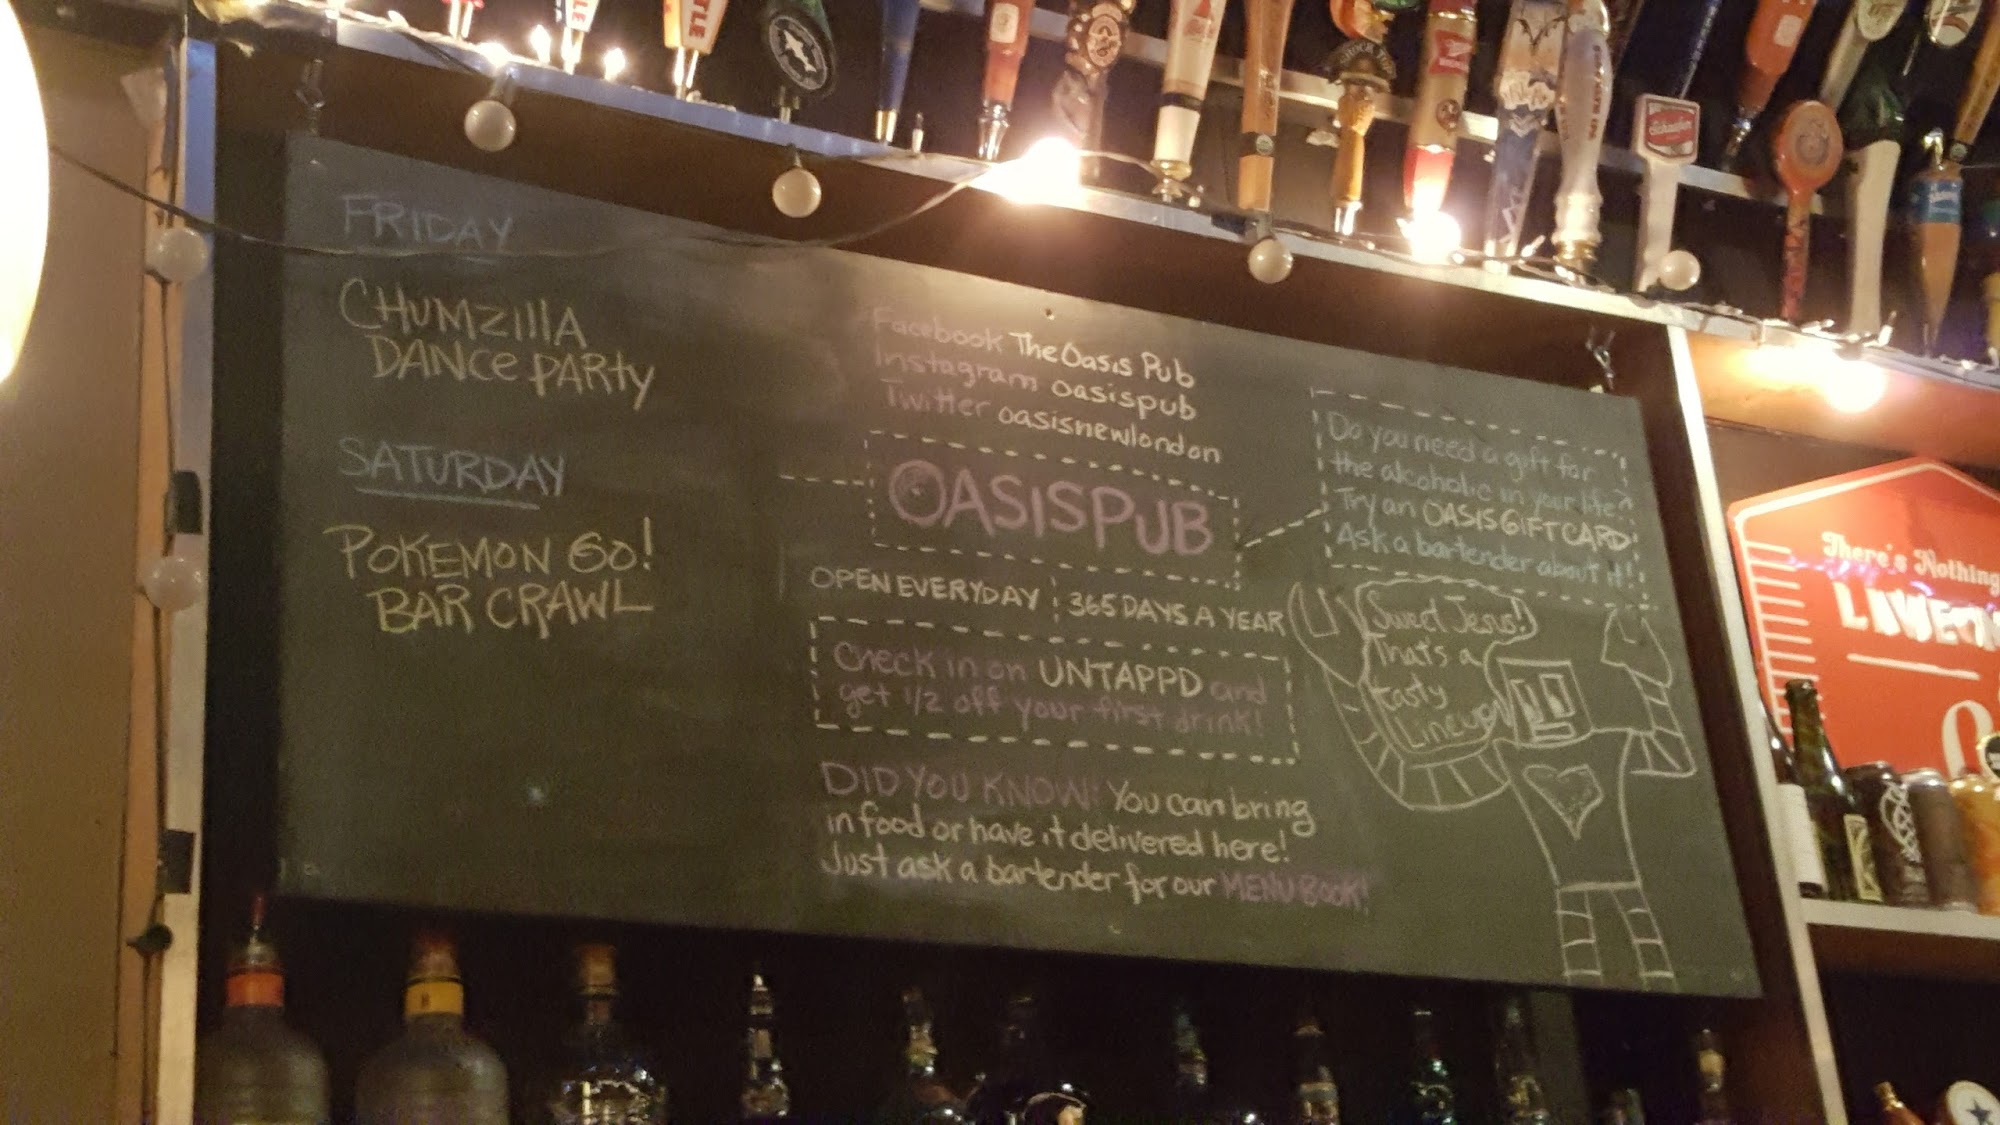 FRIDAY
CHUMZILLA
DANCE PARTY
SATURDAY
POKEMON GO!
BAR CRAWL
Facebook The Oasis Pub
Instagram oasispub
Twitter oasisnewlondon
OASISPUB
OPEN EVERYDAY
365 DAYS A YEAR
Check in on UNTAPPD and
get 1/2 off your first drink!
DID YOU KNOW: You can bring
in food or have it delivered here!
Just ask a bartender for our MENU BOOK!
Do you need a gift for
the alcoholic in your life?
Try an OASIS GIFT CARD!
Ask a bartender about it!
Sweet Jesus!
That's a
tasty
Lineup
There's Nothing
Schaefer